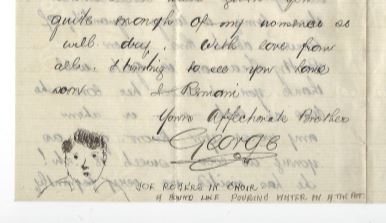 quite enough of my nonsense as
will day. With love from
all &. thinking to see you home
soon. I Remain
Yours Affectionate Brother
George
JOE ROGERS IN CHOIR
A SOUND LIKE POURING WATER IN A TIN POT.